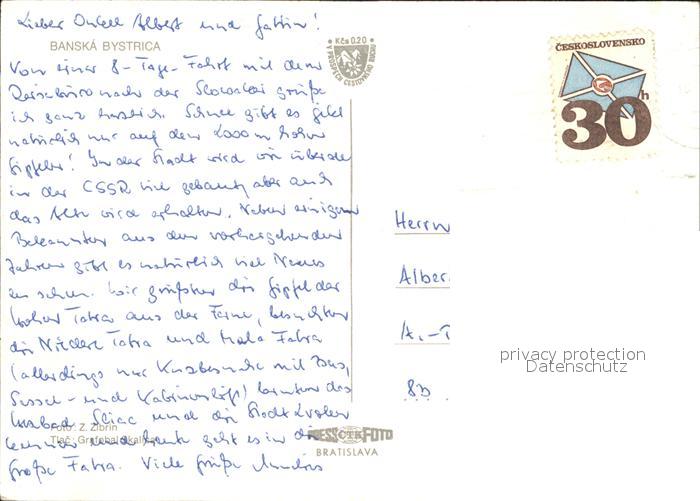 Lieber Onkel Albert und Gattin!
BANSKÁ BYSTRICA
Von einer 8-Tage-Fahrt mit dem
Reisebüro nach der Slowakei grüße
ich ganz herzlich. Schnee gibt es jetzt
natürlich nur auf den 2000 m hohen
Gipfeln! In der Stadt wird wie überall
in der CSSR viel gebaut, aber auch
das Alte wird erhalten. Neben einigem
Bekannten aus den vorhergehenden
Jahren gibt es natürlich viel Neues
zu sehen. Wir grüßten die Gipfel der
Hohen Tatra aus der Ferne, besuchten
die Niedere Tatra und Mala Fatra
(allerdings nur Kurzbesuche mit Bus,
Sessel- und Kabinenlift) lernten das
Heilbad Sliac und die Stadt Zvolen
kennen und heute geht es in die
Große Fatra. Viele Grüße
Foto: Z. Zibrín
Tlač: Grafobal Skalica
Kčs 0,20
V PROSPĚCH CESTOVNÉHO RUCHU
PRESSFOTO
ČTK
BRATISLAVA
ČESKOSLOVENSKO
30h
Herrn
Alber
A.-T
83
privacy protection
Datenschutz